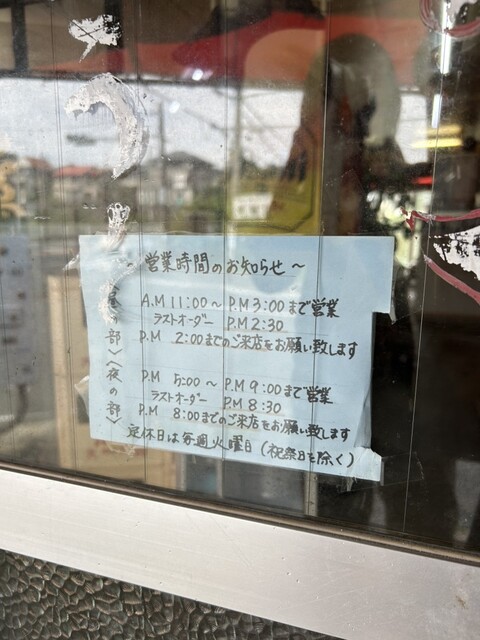 営業時間のお知らせ〜
〈昼の部〉
A.M 11:00〜P.M 3:00まで営業
ラストオーダー P.M 2:30
P.M 2:00までのご来店をお願い致します
〈夜の部〉
P.M 5:00〜P.M 9:00まで営業
ラストオーダー P.M 8:30
P.M 8:00までのご来店をお願い致します
定休日は毎週火曜日(祝祭日を除く)